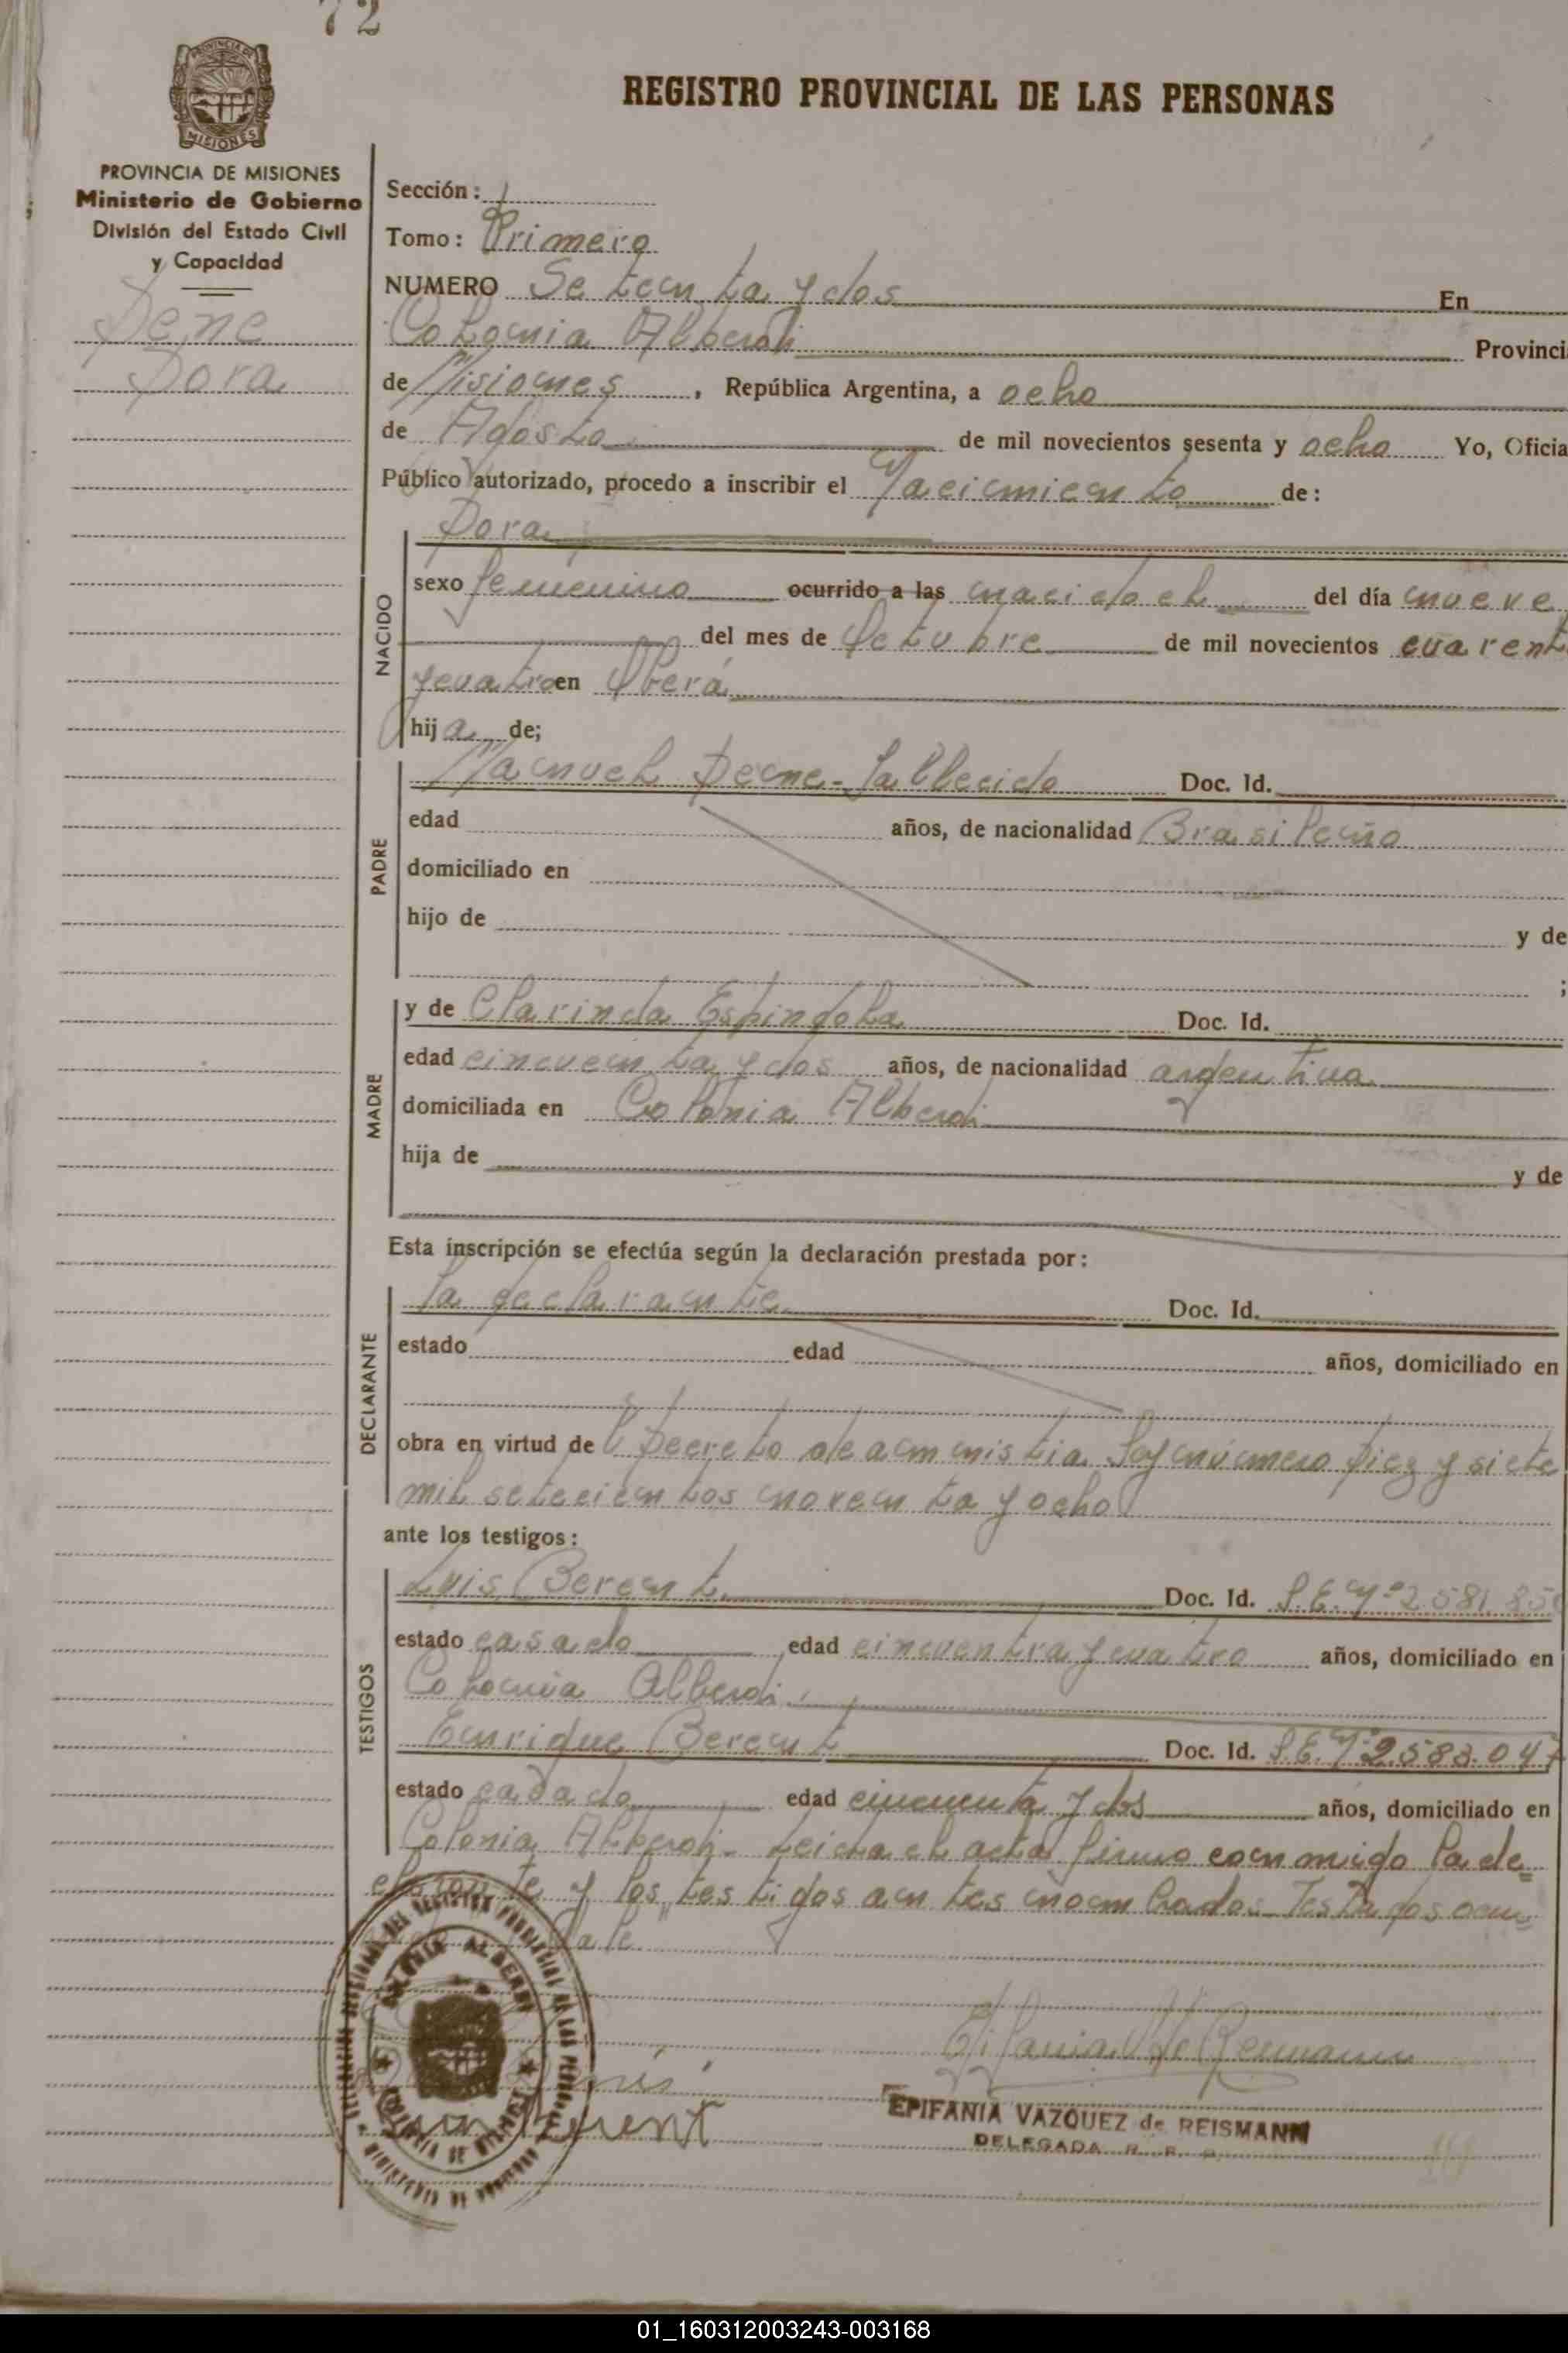 72
PROVINCIA DE
MISIONES
REGISTRO PROVINCIAL DE LAS PERSONAS
PROVINCIA DE MISIONES
Ministerio de Gobierno
División del Estado Civil
y Capacidad
Dene
Dora
Sección: 1
Tomo: Primero
NUMERO Setenta y dos En
Colonia Alberdi Provinci
de Misiones, República Argentina, a ocho
de Agosto de mil novecientos sesenta y ocho Yo, Oficia
Público autorizado, procedo a inscribir el Nacimiento de:
Dora
NACIDO
sexo femenino ocurrido a las nacido el del día nueve
del mes de Octubre de mil novecientos cuarent
y cuatro en Oberá
hija de;
PADRE
Manuel Dene - fallecido Doc. Id.
edad años, de nacionalidad Brasileño
domiciliado en
hijo de y de
;
MADRE
y de Clarinda Espindola Doc. Id.
edad cincuenta y dos años, de nacionalidad argentina
domiciliada en Colonia Alberdi
hija de y de
Esta inscripción se efectúa según la declaración prestada por:
DECLARANTE
la declarante Doc. Id.
estado edad años, domiciliado en
obra en virtud del Decreto de amnistia Ley número diez y siete
mil setecientos noventa y ocho
ante los testigos:
TESTIGOS
Luis Berent Doc. Id. L.E. Nº 2581.85
estado casado edad cincuentra y cuatro años, domiciliado en
Colonia Alberdi
Enrique Berent Doc. Id. L.E. Nº 2.583.047
estado casado edad cincuenta y dos años, domiciliado en
Colonia Alberdi. Leida el acta firma conmigo la de=
clarante y los testigos antes nombrados. Testados ocu=
Vale
COLONIA ALBERDI
Berent
EPIFANIA VAZQUEZ de REISMANN
DELEGADA R. P. P.
01_160312003243-003168